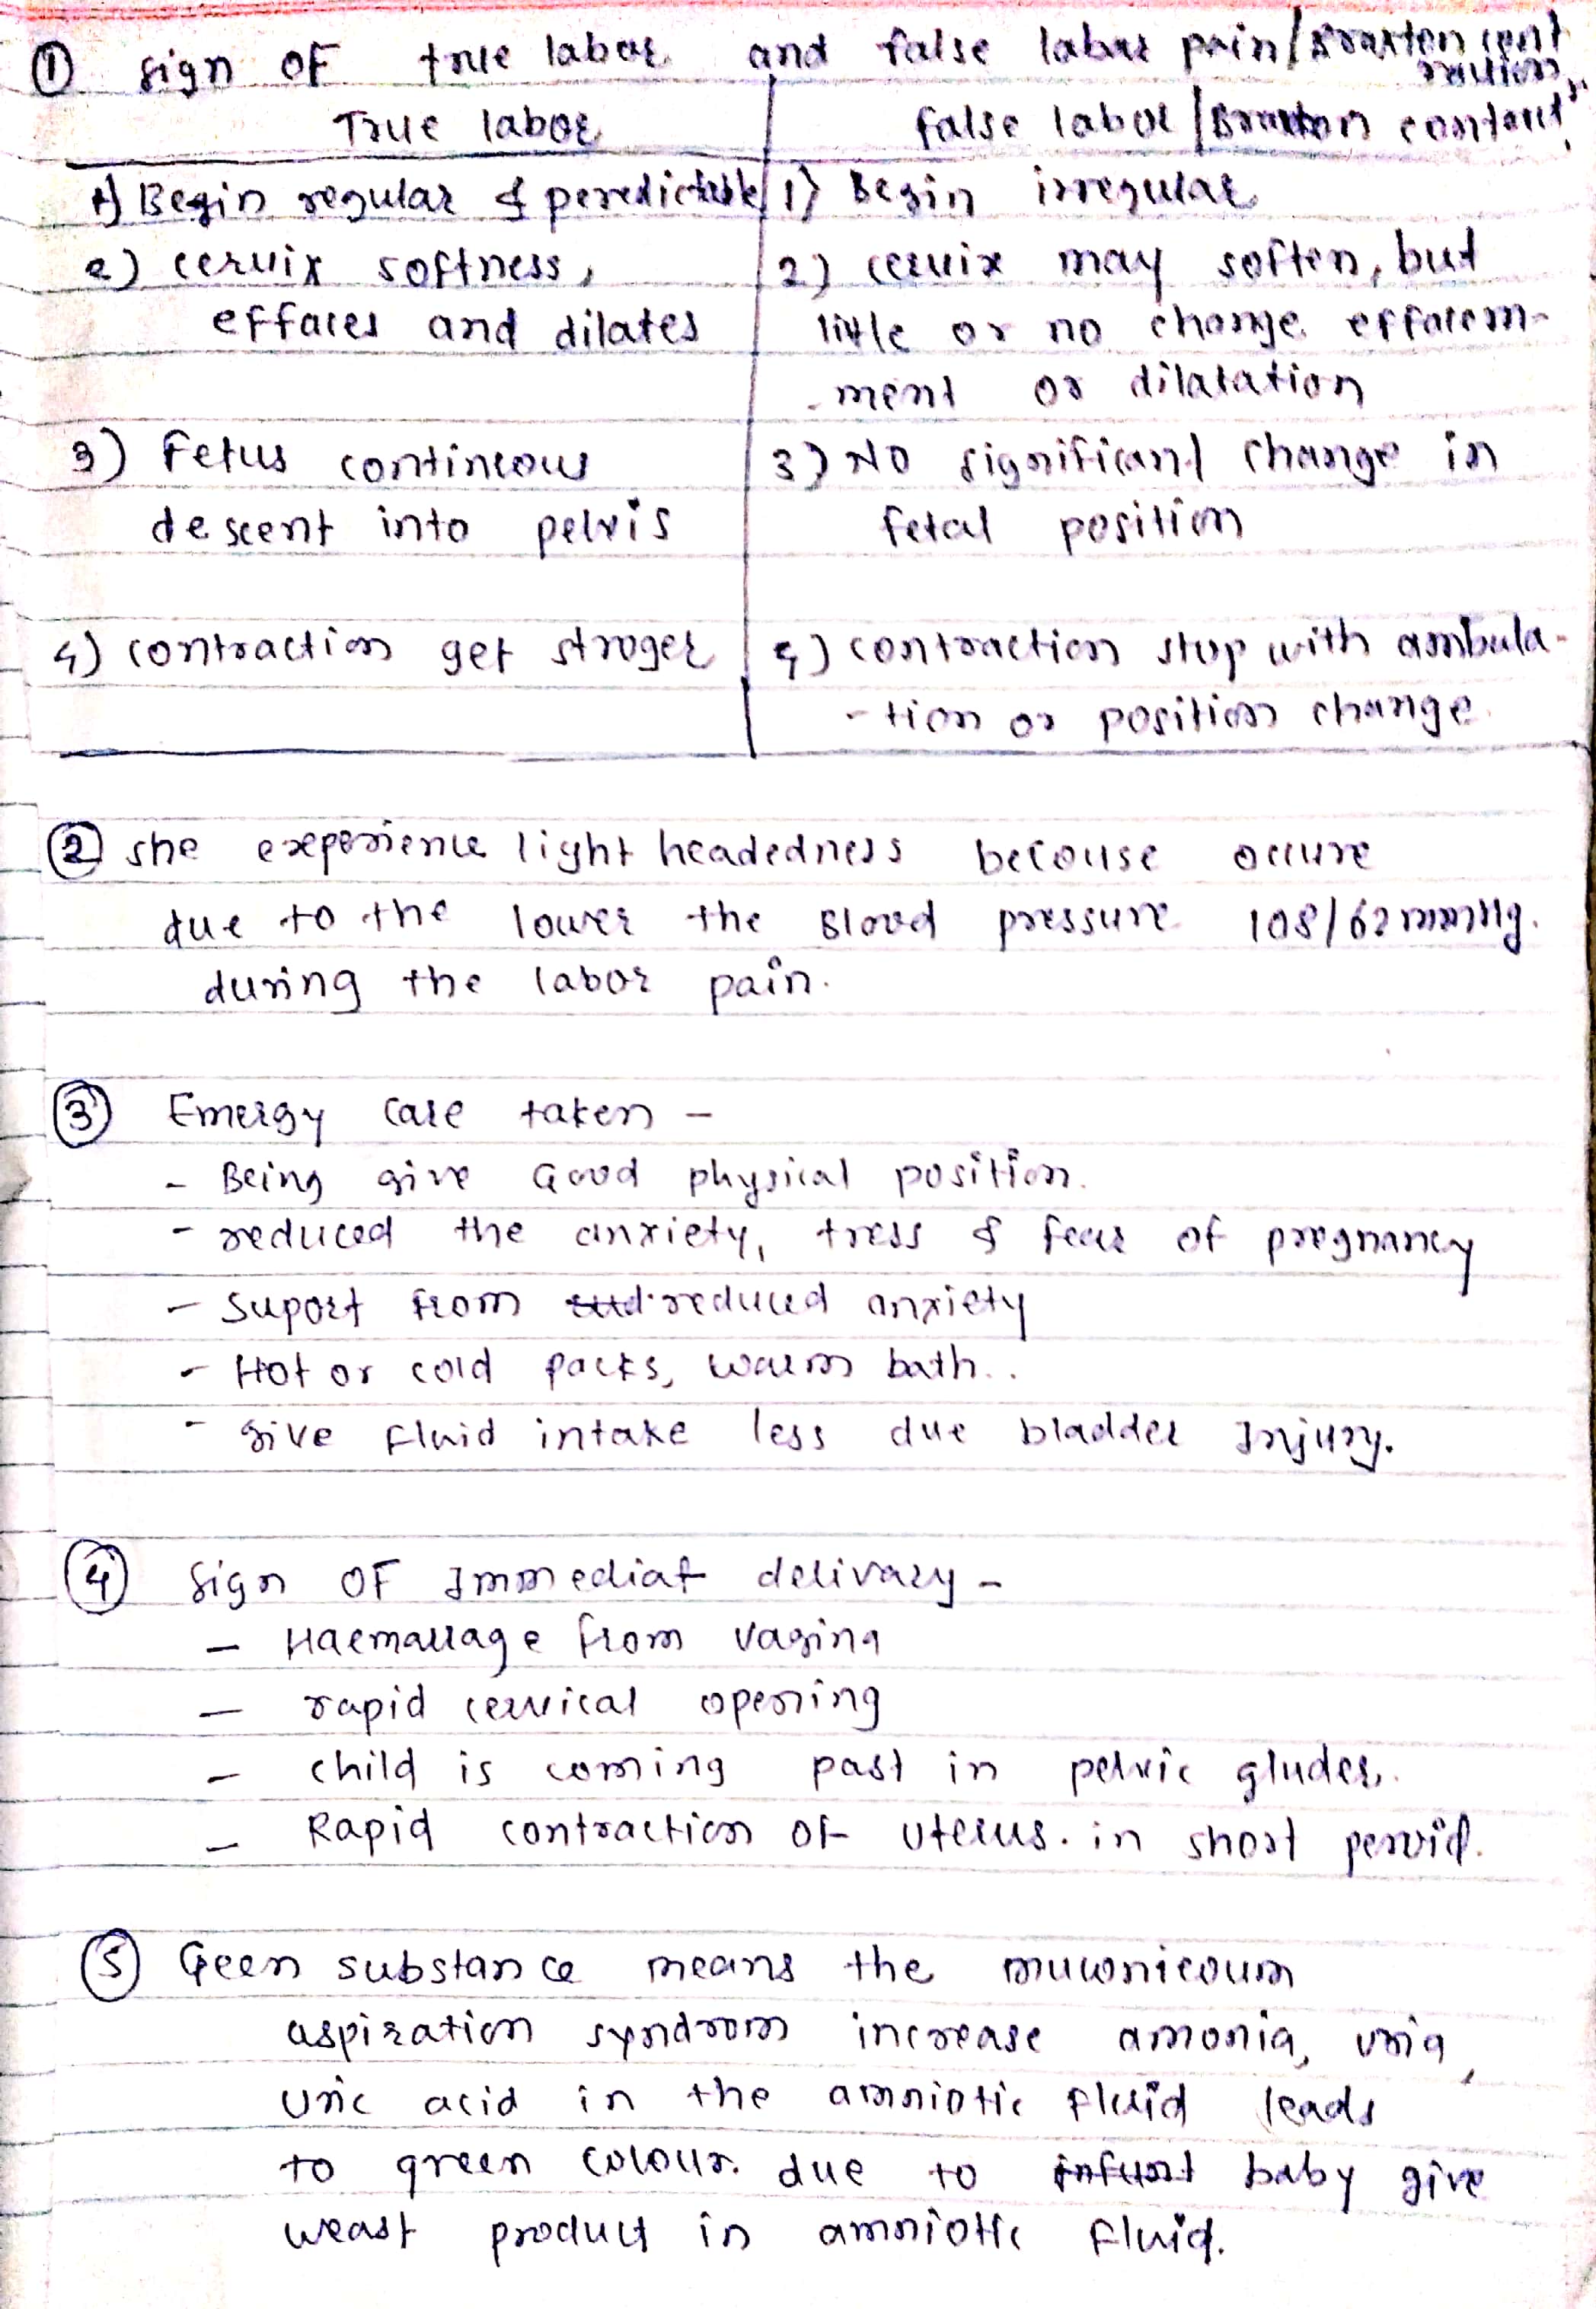 ① sign OF true labor and false labor pain/Braxton cont
raction
True labor
false labor/Braxton contract
1) Begin regular & peredictable
1) Begin irregular
2) cervix softness,
2) cervix may soften, but
effaces and dilates
little or no change effacem-
-ment or dilatation
3) Fetus contineous
3) No significant change in
descent into pelvis
fetal position
4) contraction get stroger
4) contraction stop with ambula-
-tion or position change.
② she experience light headedness becouse occure
due to the lower the Blood pressure 108/62 mmHg.
during the labor pain.
③ Emergy care taken -
- Being give Good physical position.
- reduced the anxiety, tress & fear of pregnancy
- suport from reduced anxiety
- Hot or cold packs, warm bath..
- give fluid intake less due bladder Injury.
④ sign OF Immediat delivary -
- Haemarrage from vagina
- rapid cervical opening
- child is coming past in pelvic gludes.
- Rapid contraction of uterus. in short peroid.
⑤ Geen substance means the muconicoum
aspiration syndrom increase amonia, uria,
uric acid in the amniotic fluid leads
to green colour. due to baby give
weast product in amniotic fluid.